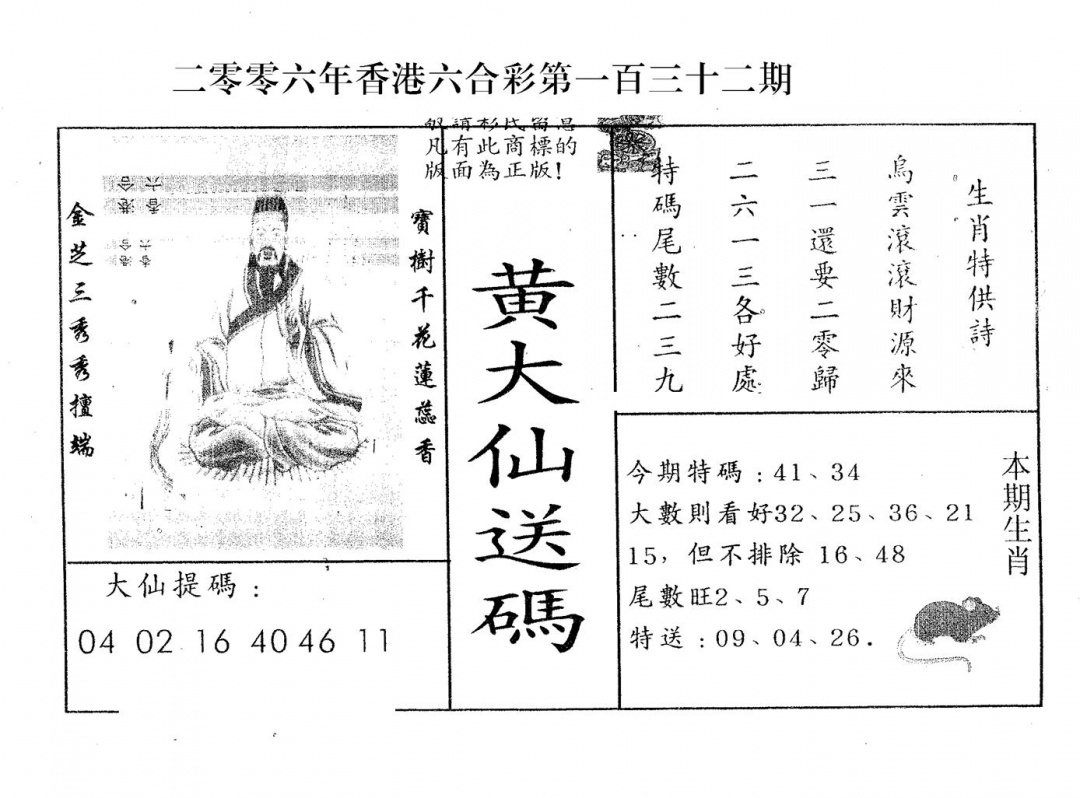 二零零六年香港六合彩第一百三十二期
凡有此商標的
版面為正版!
金芝三秀秀擅端
寶樹千花蓮蕊香
大仙提碼:
04 02 16 40 46 11
黄大仙送碼
生肖特供詩
烏雲滾滾財源來
三一還要二零歸
二六一三各好處
特碼尾數二三九
本期生肖
今期特碼:41、34
大數則看好32、25、36、21
15,但不排除 16、48
尾數旺2、5、7
特送:09、04、26.